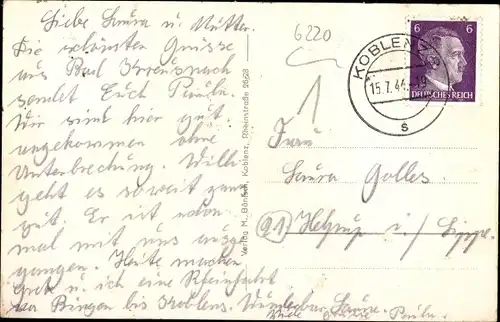 Liebe Laura u. Mutter.
Die schönsten Grüsse
aus Bad Kreuznach
sendet Euch Paula.
Wir sind hier gut
angekommen ohne
Unterbrechung. Willi
geht es soweit ganz
gut. Er ist schon
mal mit uns ausge
gangen. Heute machen
u. ich eine Rheinfahrt
von Bingen bis Koblenz. Wunderbar
Paula.
Verlag M. Bönsch, Koblenz, Rheinstraße 2658
6220
1
KOBLENZ
15.7.44
s
6 6
DEUTSCHES REICH
Frau
Laura Golles
(21) Helpup i./ Lippe.